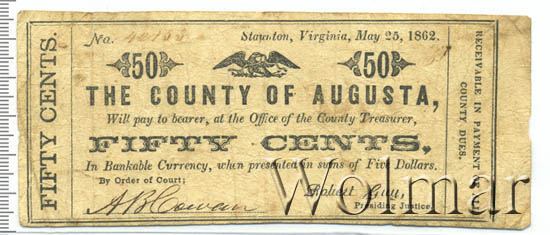 FIFTY CENTS.
No.
Staunton, Virginia, May 25, 1862.
50
50
THE COUNTY OF AUGUSTA,
Will pay to bearer, at the Office of the County Treasurer,
FIFTY CENTS,
In Bankable Currency, when presented in sums of Five Dollars.
By Order of Court;
Robert
Presiding Justice.
RECEIVABLE IN PAYMENT OF
COUNTY DUES.
Wolmar